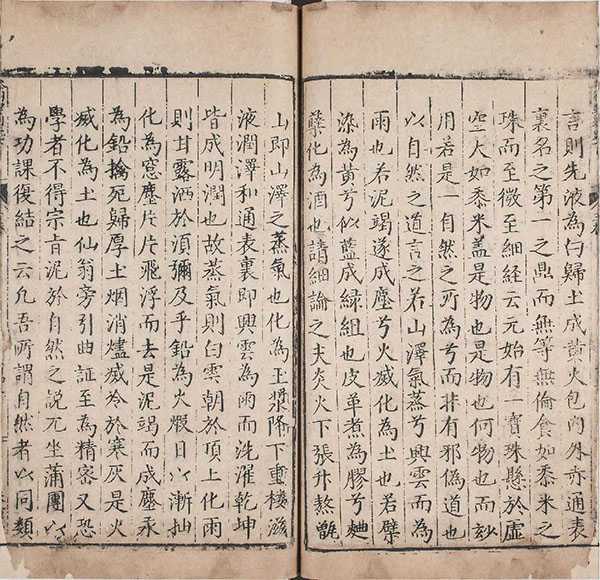 言則先液為白歸土成黃火包內外亦通表
裏名之第一之鼎而無等無倫食如黍米之
珠而至微至細經云元始有一寶珠懸於虛
空大如黍米蓋是物也是物也何物也而玅
用若是一自然之所為兮而非有邪偽道也
以自然之道言之若山澤氣蒸兮興雲而為
雨也若泥竭遂成塵兮火滅化為土也若檗
染為黃兮似藍成綠組也皮革煮為膠兮麯
糵化為酒也請細論之夫炎火下張升熬甑
山即山澤之蒸氣也化為玉漿降下重樓滋
液潤澤和通表裏即興雲為雨而洗濯乾坤
皆成明潤也故蒸氣則白雲朝於頂上化雨
則甘露洒於湏彌及乎鉛為火煆日以漸抽
化為窓塵片片飛浮而去是泥竭而成塵汞
為鉛擒死歸厚土烟消燼滅冷於寒灰是火
滅化為土也仙翁旁引曲証至為精密又恐
學者不得宗旨泥於自然之說兀坐蒲團以
為功課復結之云凡吾所謂自然者以同類